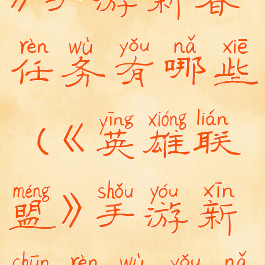 》手游新春
rèn wù yǒu nǎ xiē
任务有哪些
yīng xióng lián
（《英雄联
méng shǒu yóu xīn
盟》手游新
chūn rèn wù yǒu nǎ